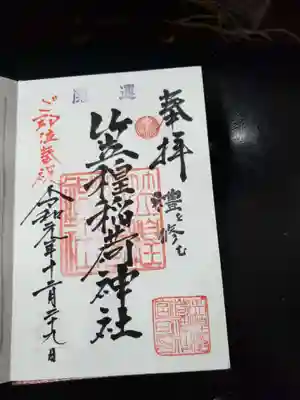 奉拝
禮を修む
開運
笠䅣稲荷神社
ご即位奉祝
令和元年十二月二十九日